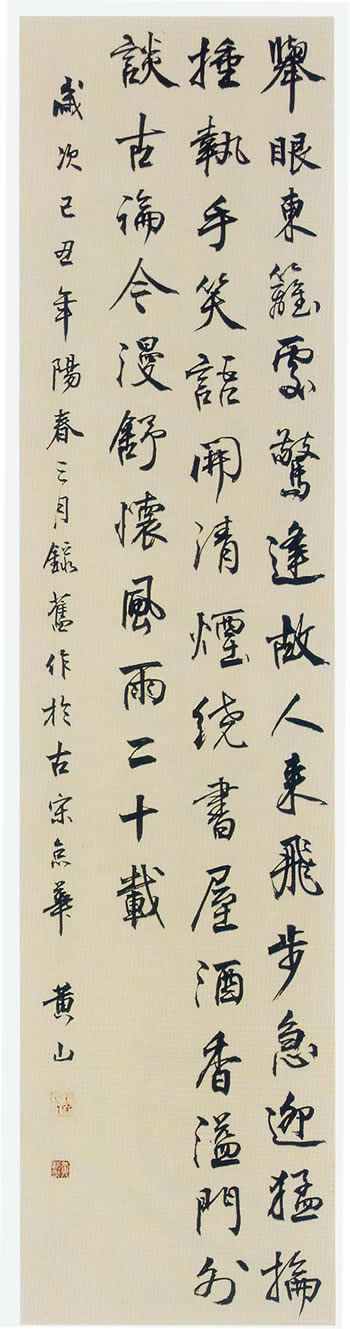 舉眼東籬處驚逢故人來飛步急迎猛掄
捶執手笑語開清煙繞書屋酒香溢門外
談古論今漫舒懷風雨二十載
歲次己丑年陽春三月錄舊作於古宋京華 黃山